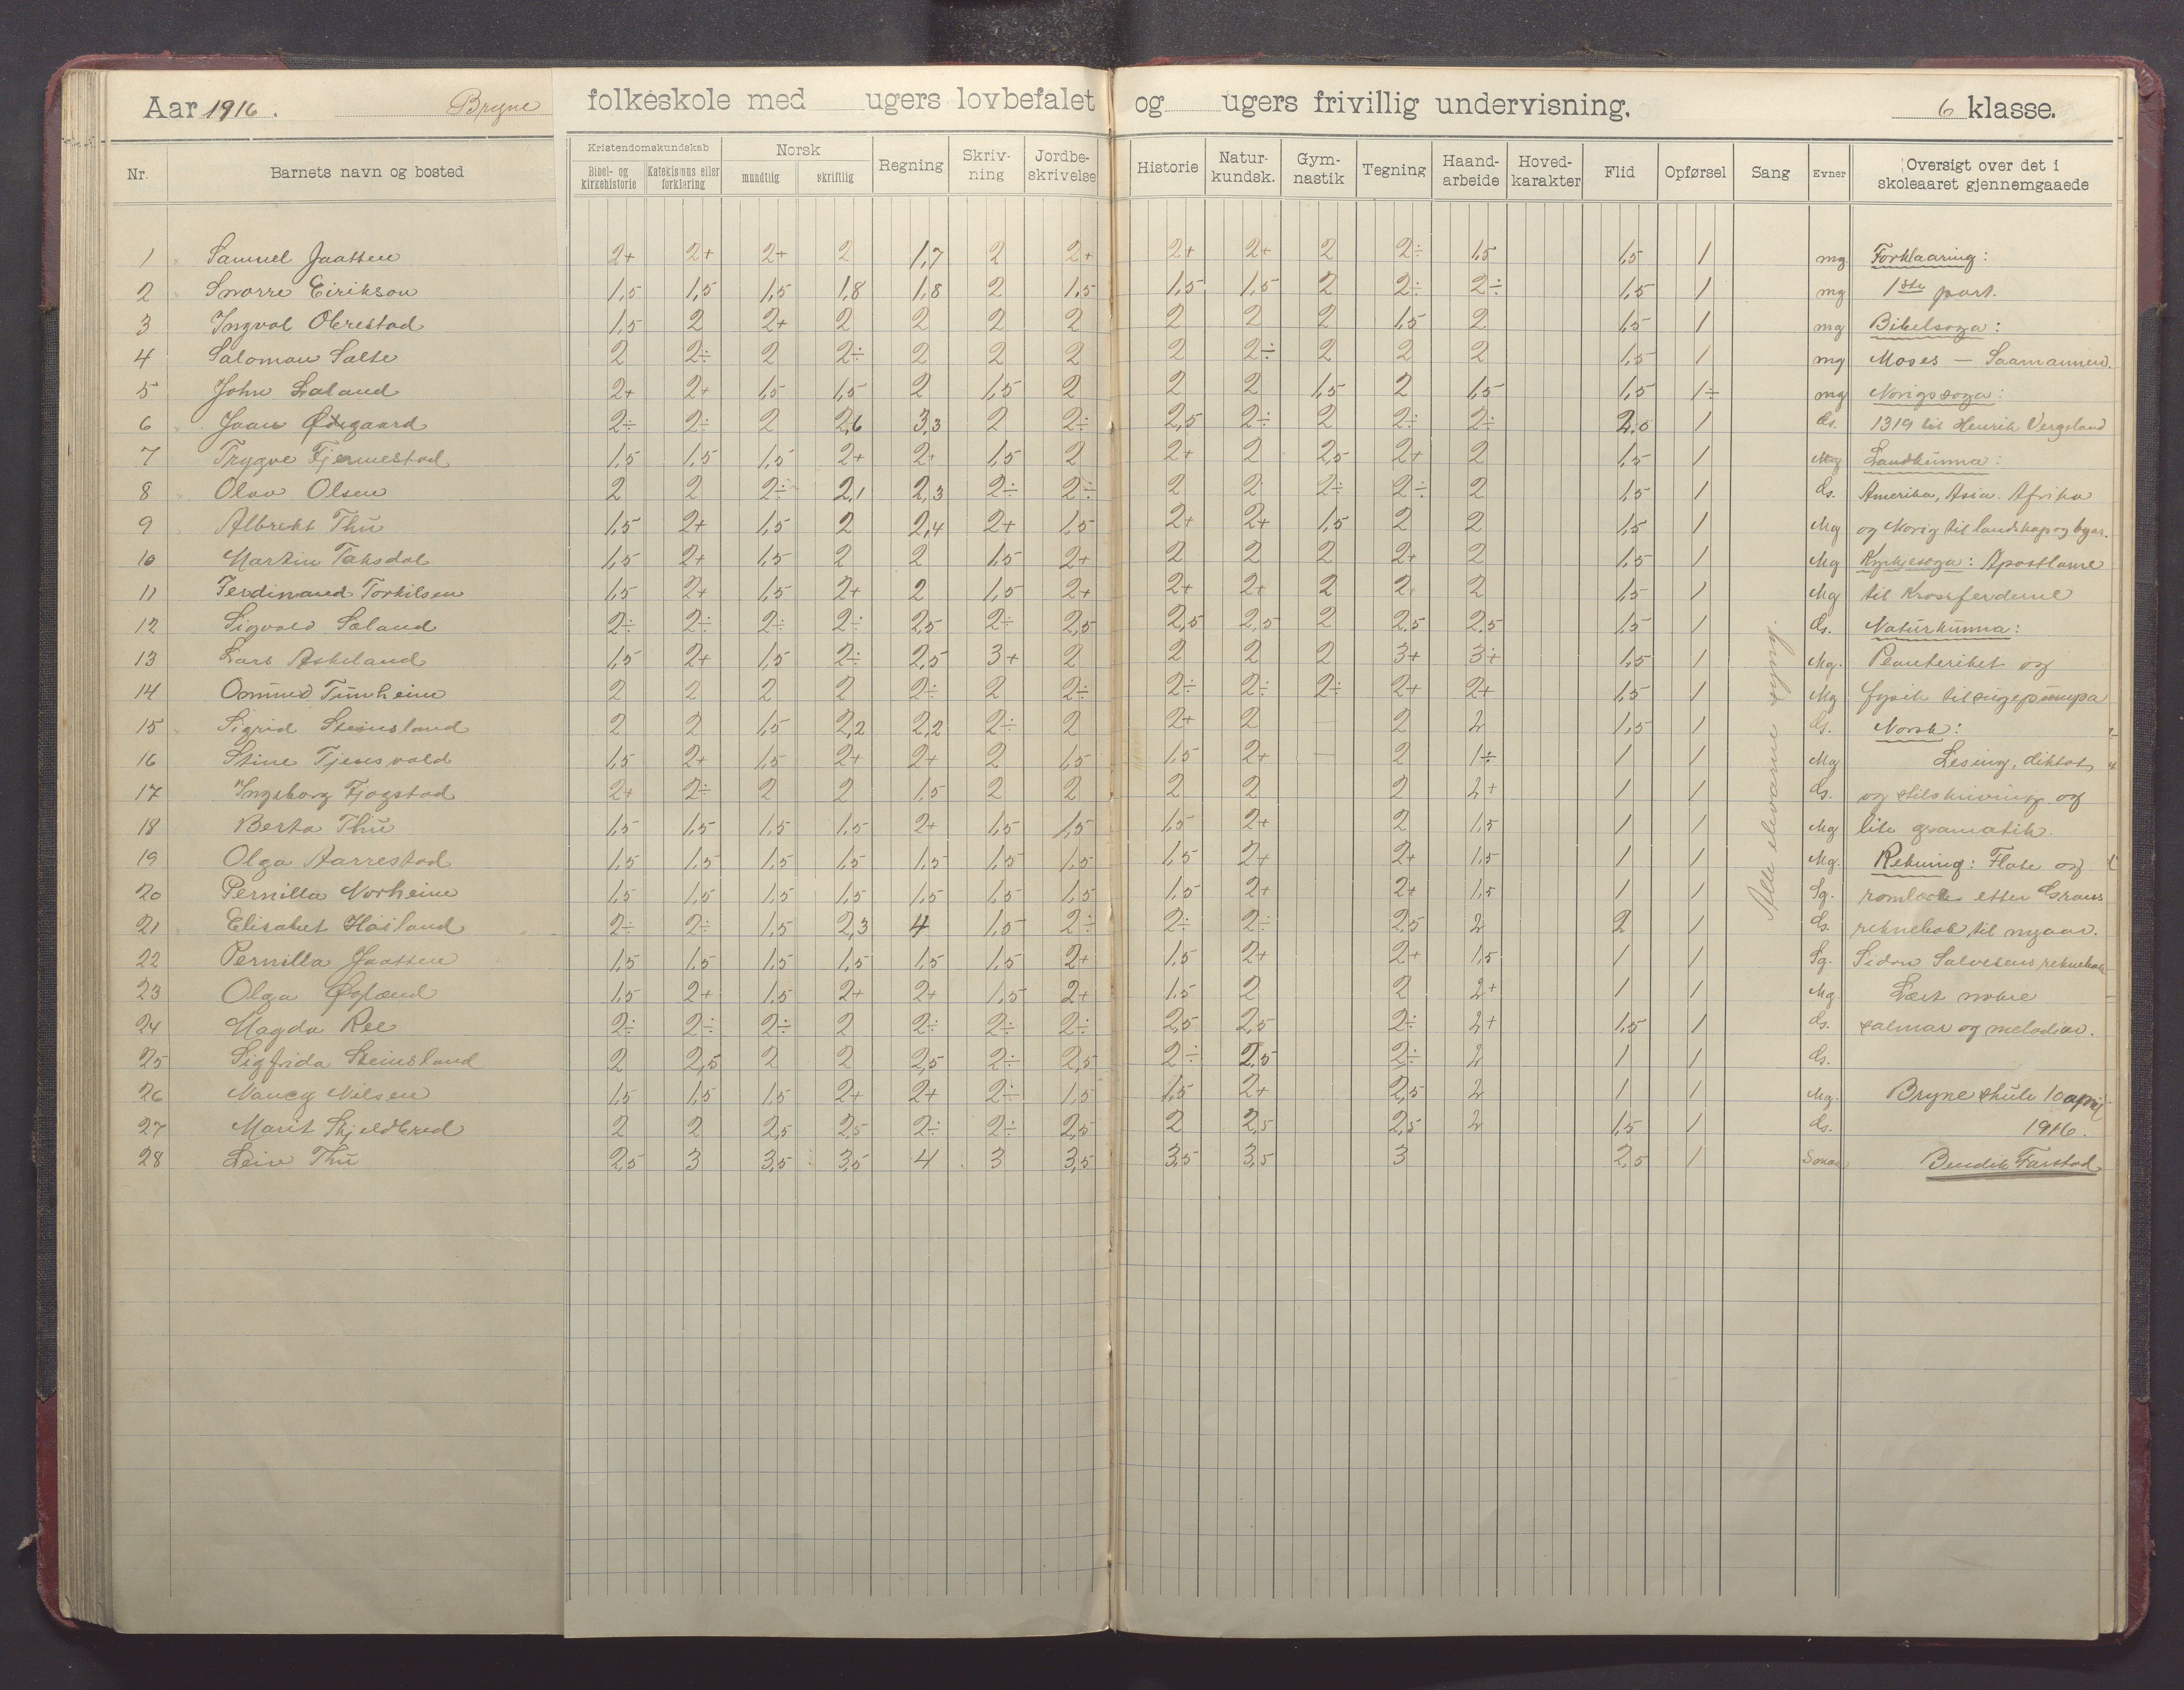 Aar 1916. Bryne folkeskole med ugers lovbefalet og ugers frivillig undervisning. 6 klasse.
Nr. Barnets navn og bosted Kristendomskundskab Bibel- og kirkehistorie Katekismus eller forklaring Norsk mundtlig skriftlig Regning Skriv-ning Jordbe-skrivelse Historie Natur-kundsk. Gym-nastik Tegning Haand-arbeide Hoved-karakter Flid Opførsel Sang Evner Oversigt over det i skoleaaret gjennemgaaede
1 Samuel Jaatten 2+ 2+ 2+ 2 1,7 2 2+ 2+ 2+ 2 2÷ 1,5 1,5 1 mg. Forklaaring:
2 Snorre Eirikson 1,5 1,5 1,5 1,8 1,8 2 1,5 1,5 1,5 2 2÷ 2÷ 1,5 1 mg 1ste part.
3 Ingval Obrestad 1,5 2 2+ 2 2 2 2 2 2 2 1,5 2 1,5 1 mg Bibelsoga:
4 Saloman Salte 2 2÷ 2 2÷ 2 2 2 2 2÷ 2 2 2 1,5 1 mg Moses — Saamannen.
5 John Laland 2+ 2+ 1,5 1,5 2 1,5 2 2 2 1,5 2 1,5 1,5 1÷ mg Norigssoga:
6 Jaan Ødegaard 2÷ 2÷ 2 2,6 3,3 2 2÷ 2,5 2÷ 2 2÷ 2÷ 2,0 1 ds. 1319 til Henrik Vergeland
7 Trygve Fjermestad 1,5 1,5 1,5 2+ 2+ 1,5 2 2+ 2 2,5 2+ 2 1,5 1 Mg Landkunna:
8 Olav Olsen 2 2 2÷ 2,1 2,3 2÷ 2÷ 2 2 2÷ 2÷ 2 1,5 1 ds. Amerika, Asia. Afrika
9 Albrekt Thu 1,5 2+ 1,5 2 2,4 2+ 1,5 2+ 2+ 1,5 2 2 1,5 1 Mg og Norig til landskap og byar.
10 Martin Taksdal 1,5 2+ 1,5 2 2 1,5 2+ 2 2 2 2+ 2 1,5 1 Mg Kyrkjesoga: Apostlarne
11 Ferdinand Torkilsen 1,5 2+ 1,5 2+ 2 1,5 2+ 2+ 2+ 2 2+ 2 1,5 1 Mg til Krossferderne
12 Sigvald Sæland 2÷ 2÷ 2÷ 2÷ 2,5 2÷ 2,5 2,5 2,5 2 2,5 2,5 1,5 1 ds. Naturkunna:
13 Lars Askeland 1,5 2+ 1,5 2÷ 2,5 3+ 2 2 2 2 3+ 3+ 1,5 1 Mg. Planteriket og
14 Osmund Tunheim 2 2 2 2 2÷ 2 2÷ 2÷ 2÷ 2÷ 2+ 2+ 1,5 1 Mg fysik til sugepumpa
15 Sigrid Steinsland 2 2 1,5 2,2 2,2 2÷ 2 2+ 2 — 2 2 1,5 1 ds. Norsk:
16 Stine Tjensvold 1,5 2+ 1,5 2+ 2+ 2 1,5 1,5 2+ — 2 1÷ 1 1 Mg Lesing, diktat,
17 Ingeborg Fjogstad 2+ 2÷ 2 2 1,5 2 2 2 2 2 2+ 1 1 ds. og stilskriving og
18 Berta Thu 1,5 1,5 1,5 1,5 2+ 1,5 1,5 1,5 2+ 2 1,5 1 1 Mg lite gramatik.
19 Olga Aarrestad 1,5 1,5 1,5 1,5 1,5 1,5 1,5 1,5 2+ 2+ 1,5 1 1 Mg. Rekning: Flate og
20 Pernilla Norheim 1,5 1,5 1,5 1,5 1,5 1,5 1,5 1,5 2+ 2+ 1,5 1 1 Sg. romlære etter
21 Elisabet Håiland 2÷ 2÷ 1,5 2,3 4 1,5 2÷ 2÷ 2÷ 2,5 2 2 1 ds. reknebok til nyaar.
22 Pernilla Jaatten 1,5 1,5 1,5 1,5 1,5 1,5 2+ 1,5 2+ 2+ 1,5 1 1 Sg. Sidan Salvesens reknebok
23 Olga Øgland 1,5 2+ 1,5 2+ 2+ 1,5 2+ 1,5 2 2 2+ 1 1 Mg. Lært nokre
24 Magda Ree 2÷ 2÷ 2÷ 2 2÷ 2÷ 2÷ 2,5 2,5 2÷ 2+ 1,5 1 ds. salmar og melodiar.
25 Sigfrida Steinsland 2 2,5 2 2 2,5 2÷ 2,5 2÷ 2,5 2÷ 2 1 1 ds.
26 Nancy Nilsen 1,5 1,5 1,5 2+ 2+ 2÷ 1,5 1,5 2+ 2,5 2 1 1 Mg. Bryne skule 10 april
27 Marit Skjeldbred 2 2 2,5 2,5 2÷ 2÷ 2,5 2 2,5 2,5 2 1,5 1 ds. 1916.
28 Leiv Thu 2,5 3 3,5 3,5 4 3 3,5 3,5 3,5 3 2,5 1 Bendik Farstad
Alle elevarne syng.